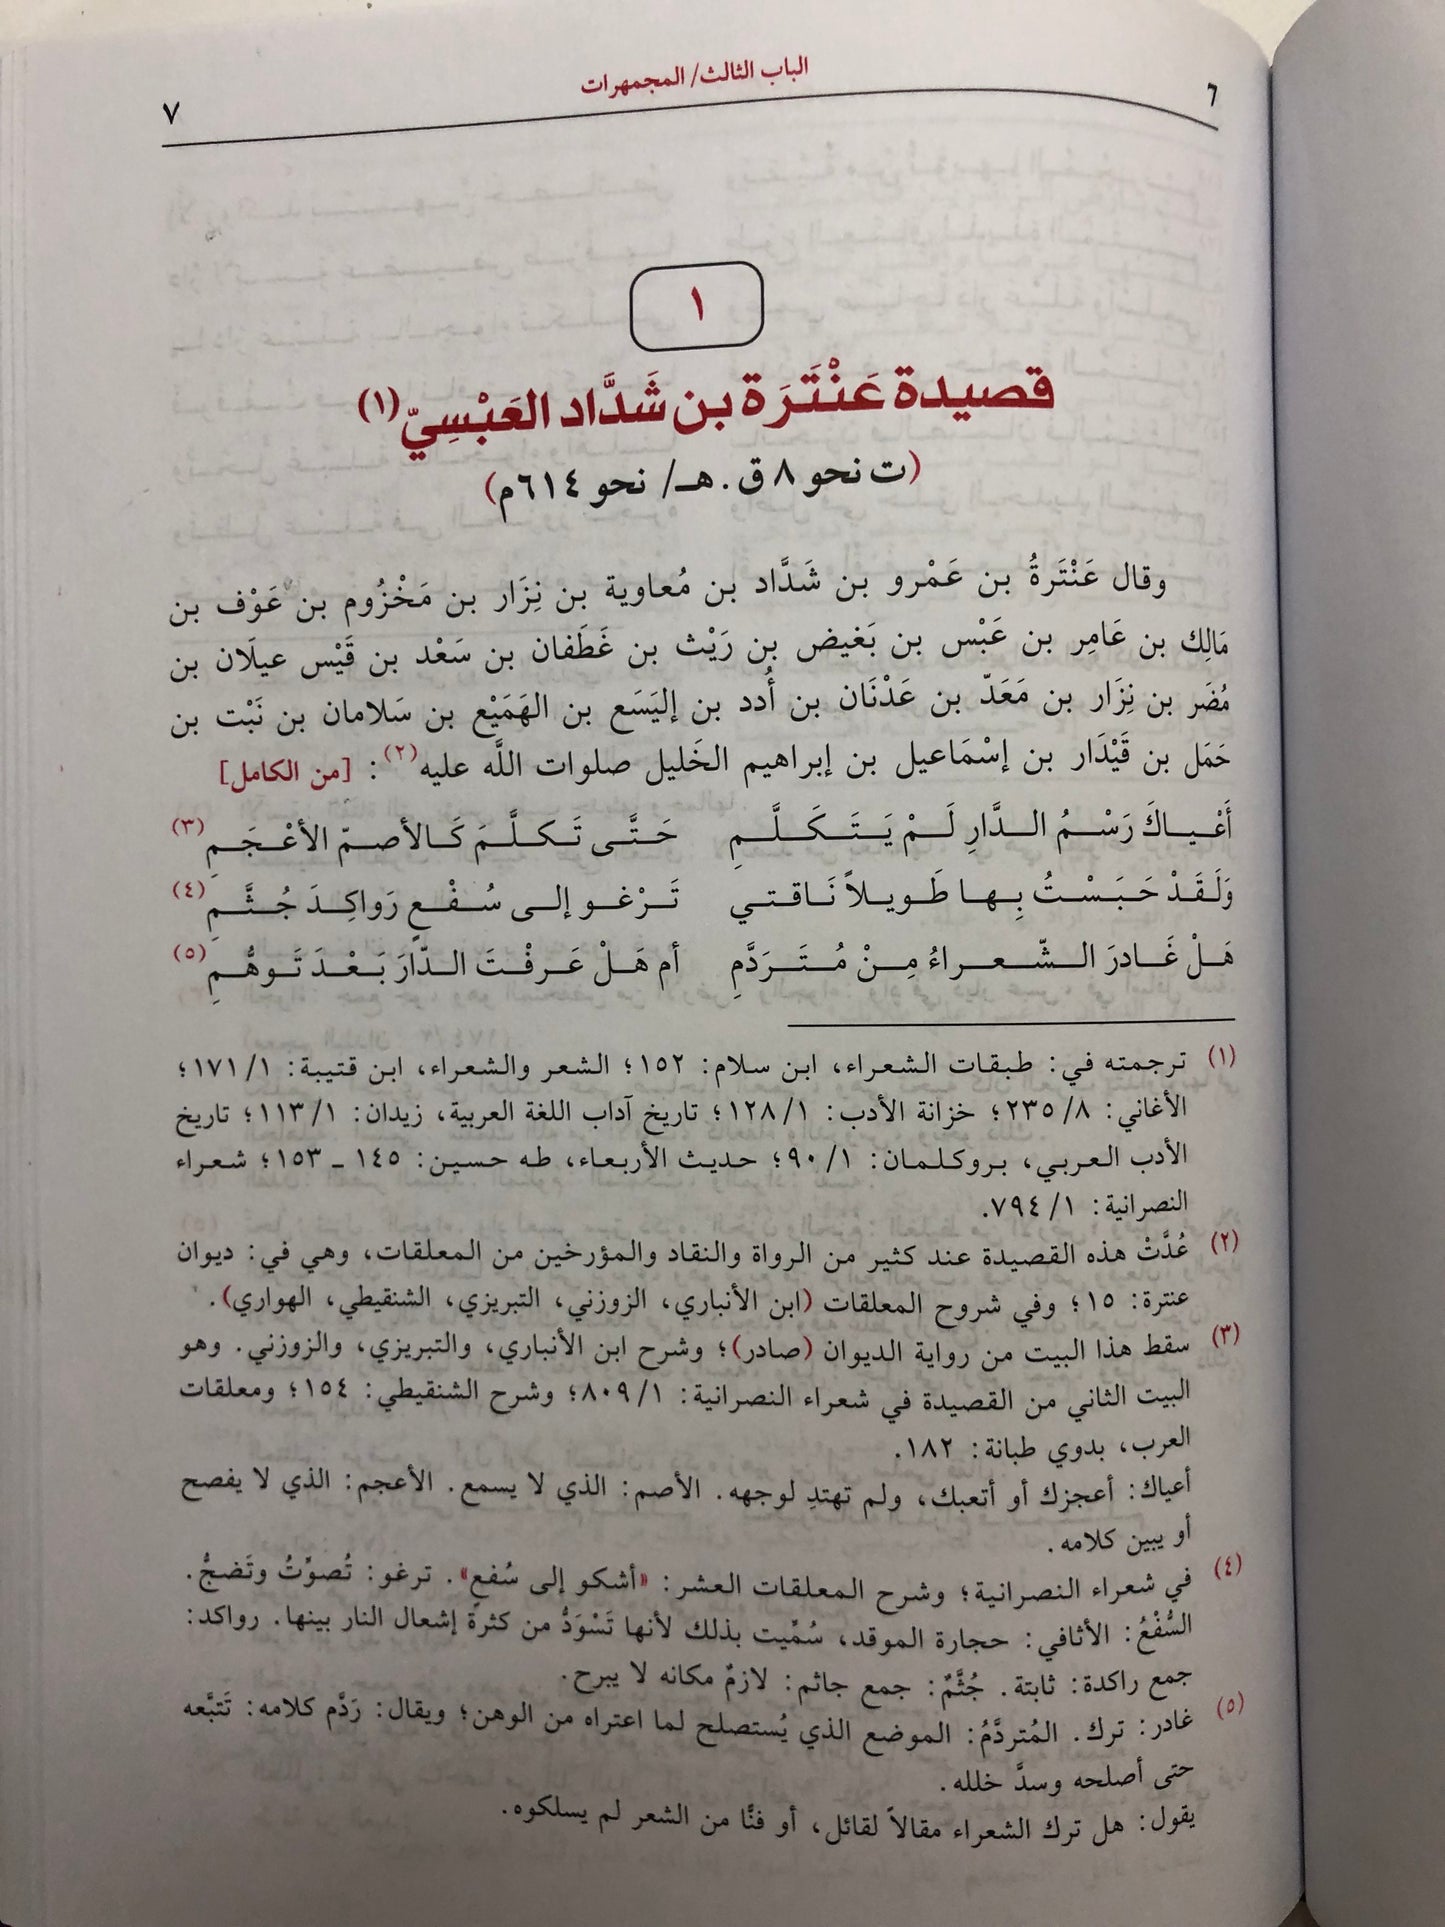 ٦
الباب الثالث/ المجمهرات
٧
١
قصيدة عَنْتَرَة بن شَدَّاد العَبْسِيّ(١)
(ت نحو ٨ ق. هـ/ نحو ٦١٤م)
وقال عَنْتَرَةُ بن عَمْرو بن شَدَّاد بن مُعاوية بن نِزَار بن مَخْزُوم بن عَوْف بن
مَالِك بن عَامِر بن عَبْس بن بَغيض بن رَيْث بن غَطَفان بن سَعْد بن قَيْس عيلَان بن
مُضَر بن نِزَار بن مَعَدّ بن عَدْنَان بن أُدد بن إليَسَع بن الهَمَيْع بن سَلامان بن نَبْت بن
حَمَل بن قَيْدَار بن إسْمَاعيل بن إبراهيم الخَليل صلوات اللَّه عليه(٢): [من الكامل]
أَعْيـاكَ رَسْـمُ الـدَّارِ لَـمْ يَـتَـكَـلَّـمِ حَـتَّـى تَـكـلَّـمَ كَـالأصـمّ الأعْـجَـمِ(٣)
وَلَـقَـدْ حَـبَـسْـتُ بِـهـا طَـويـلاً نَـاقـتي تَـرْغـو إلـى سُـفْـعٍ رَواكِـدَ جُـثَّـمِ(٤)
هَـلْ غَـادَرَ الـشّـعـراءُ مِـنْ مُـتَـرَدَّمِ أم هَـلْ عَـرفْـتَ الـدّارَ بَـعْـدَ تَـوهُّـمِ(٥)
(١) ترجمته في: طبقات الشعراء، ابن سلام: ١٥٢؛ الشعر والشعراء، ابن قتيبة: ١/ ١٧١؛
الأغاني: ٨/ ٢٣٥؛ خزانة الأدب: ١/ ١٢٨؛ تاريخ آداب اللغة العربية، زيدان: ١/ ١١٣؛ تاريخ
الأدب العربي، بروكلمان: ١/ ٩٠؛ حديث الأربعاء، طه حسين: ١٤٥ ـ ١٥٣؛ شعراء
النصرانية: ١/ ٧٩٤.
(٢) عُدَّتْ هذه القصيدة عند كثير من الرواة والنقاد والمؤرخين من المعلقات، وهي في: ديوان
عنترة: ١٥؛ وفي شروح المعلقات (ابن الأنباري، الزوزني، التبريزي، الشنقيطي، الهواري).
(٣) سقط هذا البيت من رواية الديوان (صادر)؛ وشرح ابن الأنباري، والتبريزي، والزوزني. وهو
البيت الثاني من القصيدة في شعراء النصرانية: ١/ ٨٠٩؛ وشرح الشنقيطي: ١٥٤؛ ومعلقات
العرب، بدوي طبانة: ١٨٢.
أعياك: أعجزك أو أتعبك، ولم تهتدِ لوجهه. الأصم: الذي لا يسمع. الأعجم: الذي لا يفصح
أو يبين كلامه.
(٤) في شعراء النصرانية؛ وشرح المعلقات العشر: «أشكو إلى سُفعٍ». ترغو: تُصوِّتُ وتَضجُّ.
السُّفْعُ: الأثافي: حجارة الموقد، سُمِّيت بذلك لأنها تَسْوَدُّ من كثرة إشعال النار بينها. رواكد:
جمع راكدة: ثابتة. جُثَّمٌ: جمع جاثم: لازمٌ مكانه لا يبرح.
(٥) غادر: ترك. المُتردَّمُ: الموضع الذي يُستصلح لما اعتراه من الوهن؛ ويقال: رَدَّم كلامه: تَتبَّعه
حتى أصلحه وسدَّ خلله.
يقول: هل ترك الشعراء مقالاً لقائل، أو فنًّا من الشعر لم يسلكوه.